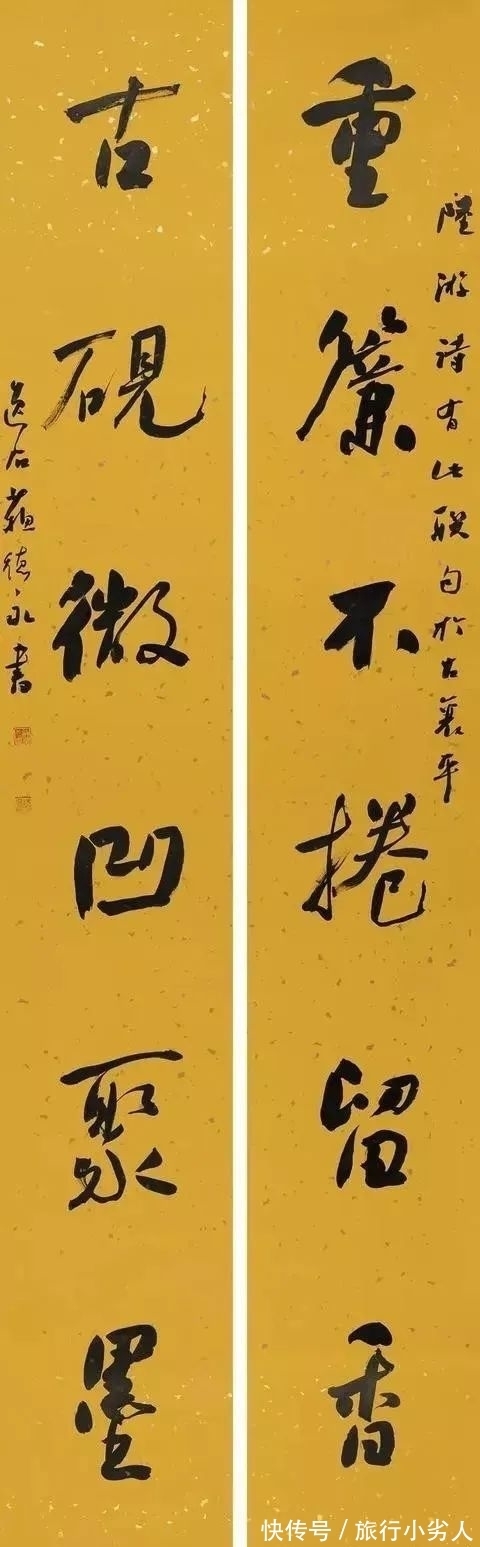 陸游詩有此联句於古襄平
重簾不捲留香
古硯微凹聚墨
石蘓德永書
快传号／旅行小劣人